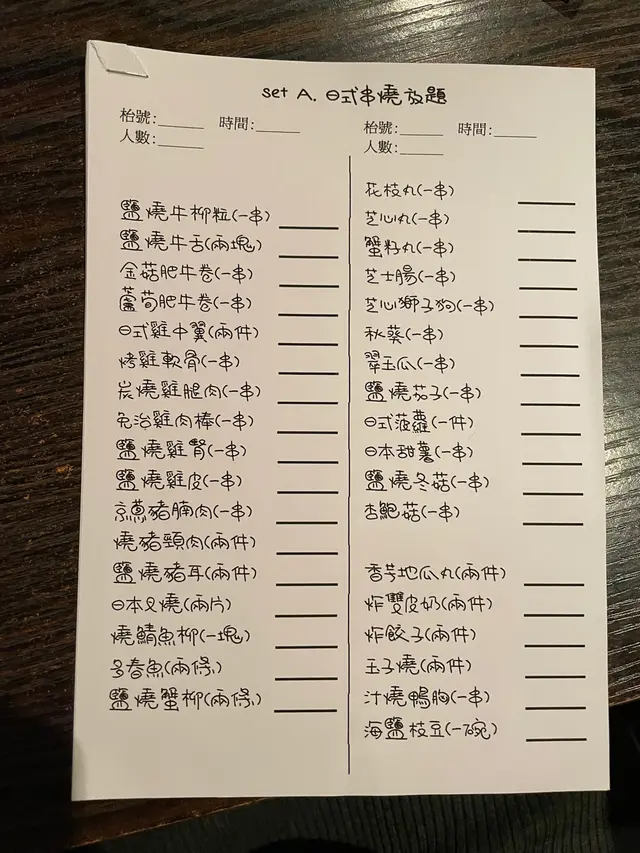 set A. 日式串燒放題
枱號:_____ 時間:_____
人數:_____
鹽燒牛柳粒(一串)
鹽燒牛舌(兩塊)
金菇肥牛卷(一串)
蘆荀肥牛卷(一串)
日式雞中翼(兩件)
烤雞軟骨(一串)
炭燒雞腿肉(一串)
免治雞肉棒(一串)
鹽燒雞腎(一串)
鹽燒雞皮(一串)
京蔥豬腩肉(一串)
燒豬頸肉(兩件)
鹽燒豬耳(兩件)
日本叉燒(兩片)
燒鯖魚柳(一塊)
多春魚(兩條)
鹽燒蟹柳(兩條)
枱號:_____ 時間:_____
人數:_____
花枝丸(一串)
芝心丸(一串)
蟹籽丸(一串)
芝士腸(一串)
芝心獅子狗(一串)
秋葵(一串)
翠玉瓜(一串)
鹽燒茄子(一串)
日式菠蘿(一件)
日本甜薯(一串)
鹽燒冬菇(一串)
杏鮑菇(一串)
香芋地瓜丸(兩件)
炸雙皮奶(兩件)
炸餃子(兩件)
玉子燒(兩件)
汁燒鴨胸(一串)
海鹽枝豆(一碗)